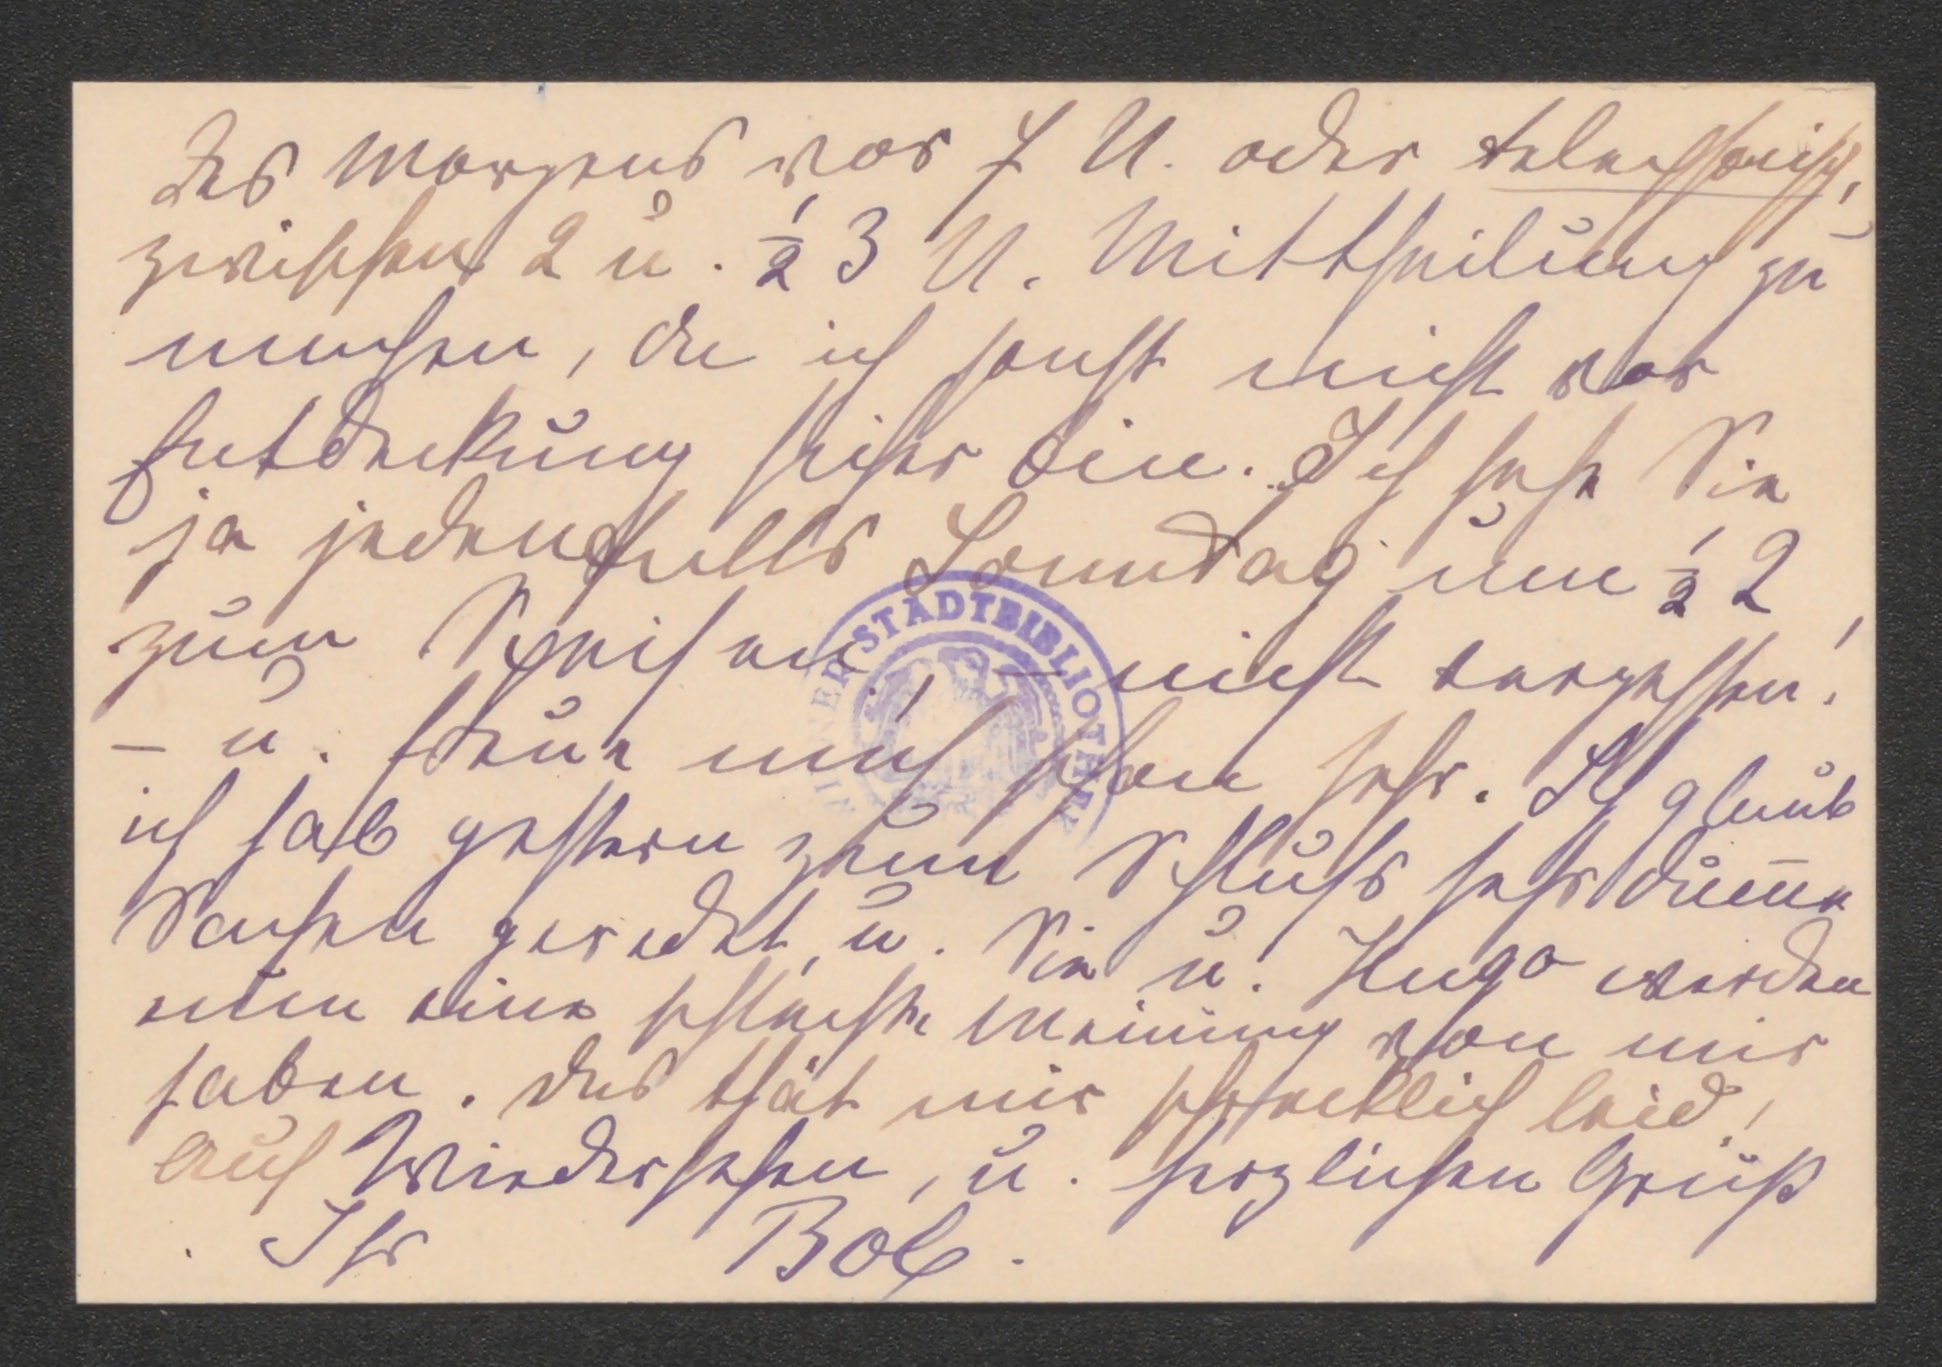 des Morgens vor 7 U. oder telephonisch,
zwischen 2 u. ½ 3 U. Mittheilung zu
machen, da ich sonst nicht vor
Entdeckung sicher bin. Ich sehe Sie
ja jedenfalls Sonntag um ½ 2
zum Speisen, – nicht vergessen!
– u. freue mich schon sehr. Ich glaub
ich hab gestern zum Schluss sehr dum̅e
Sachen geredet, u. Sie u. Hugo werden
nun eine schlechte Meinung von mir
haben. Das thät mir schrecklich leid!
Auf Wiedersehen, u. herzlichen Gruß
Ihr Bob.
WIENER STADTBIBLIOTHEK